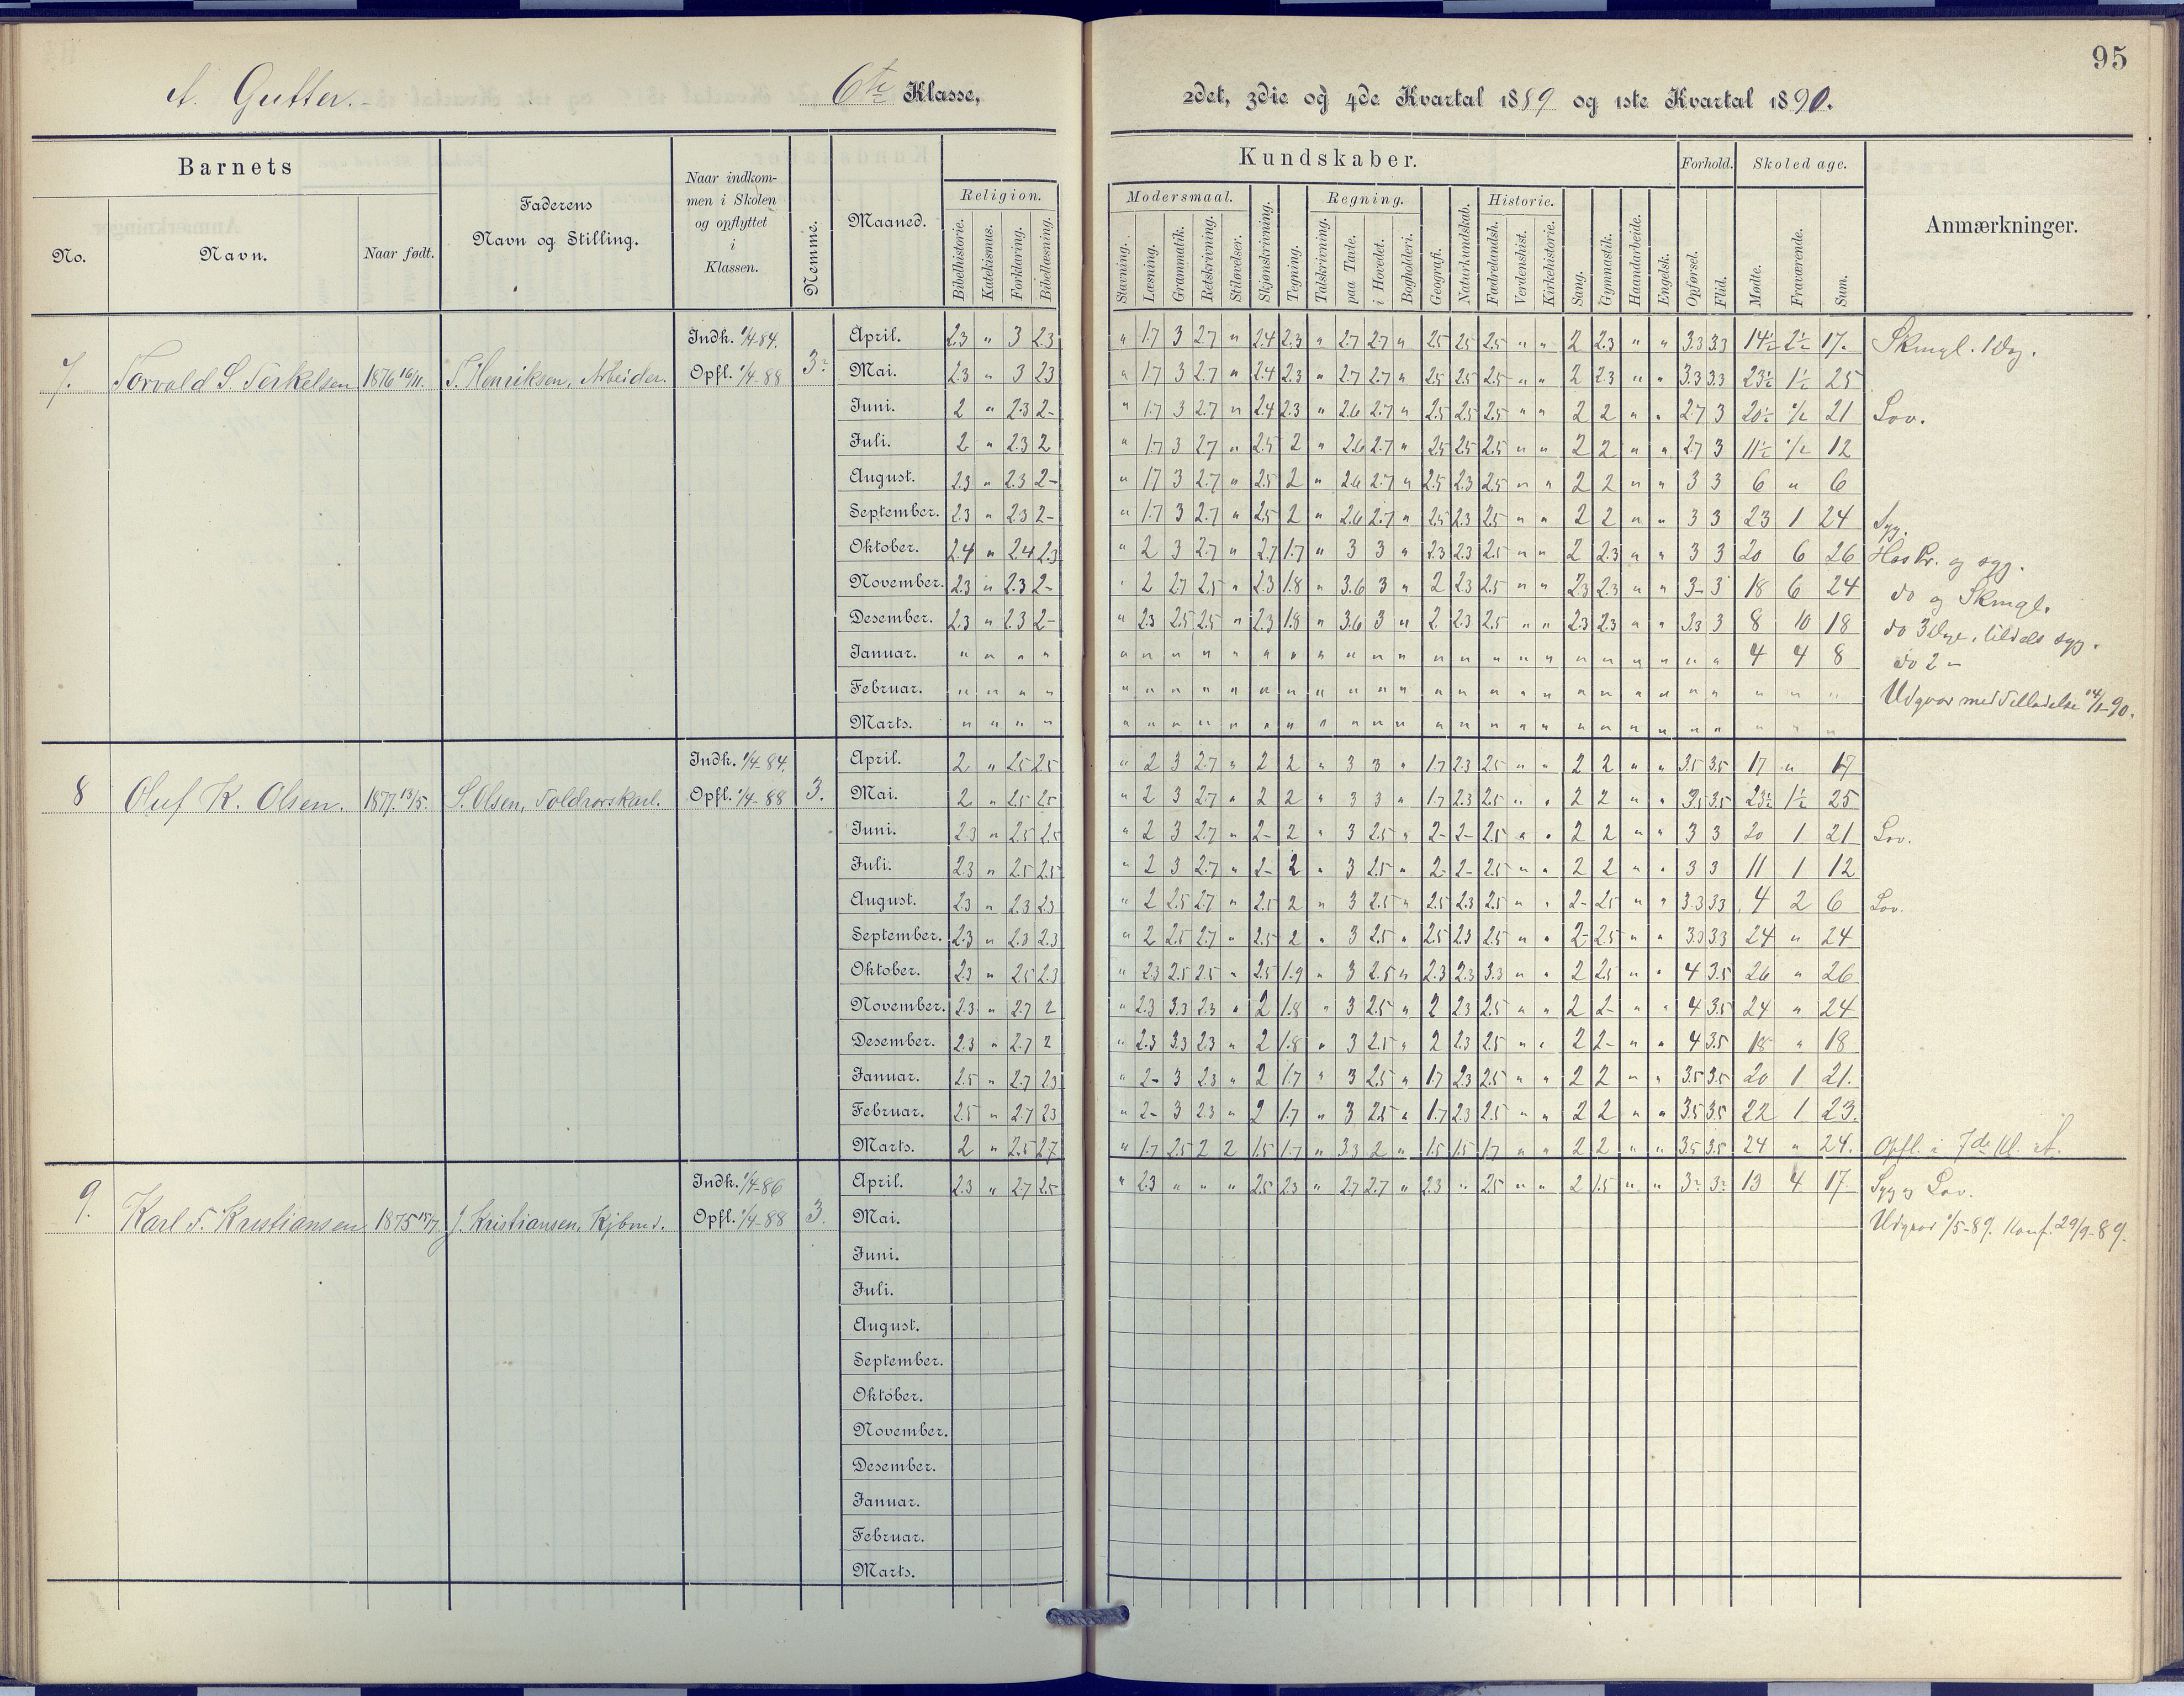 95
A. Gutter. 6te Klasse, 2det, 3die og 4de Kvartal 1889 og 1ste Kvartal 1890.
Barnets
No.
Navn.
Naar født.
Faderens
Navn og Stilling.
Naar indkom-
men i Skolen
og opflyttet
i
Klassen.
Nemme.
Maaned.
Religion.
Bibelhistorie.
Katekismus.
Forklaring.
Bibellæsning.
Kundskaber.
Modersmaal.
Stavning.
Læsning.
Grammatik.
Retskrivning.
Stiløvelser.
Skjønskrivning.
Tegning.
Regning.
Talskrivning.
paa Tavle.
i Hovedet.
Bogholderi.
Geografi.
Naturkundskab.
Historie.
Fædrelandsh.
Verdenshist.
Kirkehistorie.
Sang.
Gymnastik.
Haandarbeide.
Engelsk.
Forhold.
Opførsel.
Flid.
Skoledage.
Mødte.
Fraværende.
Sum.
Anmærkninger.
7. Torvald S Terkelsen 1876 16/11. T. Henriksen, Arbeider.
Indk. 1/4 84.
Opfl. 1/4-88
April. 2.3 „ 3 2.3 „ 1.7 3 2.7 „ 2.4 2.3 „ 2.7 2.7 „ 2.5 2.5 2.5 „ „ 2 2.3 „ „ 3.3 3.3 14½ 2½ 17. Skmgl. 1 Dag.
Mai. 2.3 „ 3 2.3 „ 1.7 3 2.7 „ 2.4 2.3 „ 2.7 2.7 „ 2.5 2.5 2.5 „ „ 2 2.3 „ „ 3.3 3.3 23½ 1½ 25
Juni. 2 „ 2.3 2- „ 1.7 3 2.7 „ 2.4 2.3 „ 2.6 2.7 „ 2.5 2.5 2.5 „ „ 2 2 „ „ 2.7 3 20½ ½ 21 Lov.
Juli. 2 „ 2.3 2 „ 1.7 3 2.7 „ 2.5 2 „ 2.6 2.7 „ 2.5 2.5 2.5 „ „ 2 2 „ „ 2.7 3 11½ ½ 12
August. 2.3 „ 2.3 2- „ 1.7 3 2.7 „ 2.5 2 „ 2.6 2.7 „ 2.5 2.3 2.5 „ „ 2 2 „ „ 3 3 6 „ 6
September. 2.3 „ 2.3 2- „ 1.7 3 2.7 „ 2.5 2 „ 2.6 2.7 „ 2.5 2.3 2.5 „ „ 2 2 „ „ 3 3 23 1 24 Syg.
Oktober. 2.4 „ 2.4 2.3 „ 2 3 2.7 „ 2.7 1.7 „ 3 3 „ 2.3 2.3 2.5 „ „ 2 2.3 „ „ 3 3 20 6 26 Hos Pr. og syg.
November. 2.3 „ 2.3 2- „ 2 2.7 2.5 „ 2.3 1.8 „ 3.6 3 „ 2 2.3 2.5 „ „ 2.3 2.3 „ „ 3- 3 18 6 24 do og Skmgl.
Desember. 2.3 „ 2.3 2- „ 2.3 2.5 2.5 „ 2.3 1.8 „ 3.6 3 „ 2 2.3 2.5 „ „ 2.3 2.3 „ „ 3.3 3 8 10 18 do 3 Dge, tildels syg.
Januar. „ „ „ „ „ „ „ „ „ „ „ „ „ „ „ „ „ „ „ „ „ „ „ „ „ „ 4 4 8 do 2 -
Februar. „ „ „ „ „ „ „ „ „ „ „ „ „ „ „ „ „ „ „ „ „ „ „ „ „ „ „ „ „ Udgaar med Tilladelse 14/1-90.
Marts. „ „ „ „ „ „ „ „ „ „ „ „ „ „ „ „ „ „ „ „ „ „ „ „ „ „ „ „ „
8 Oluf K. Olsen. 1877. 13/5. S. Olsen, Toldrorskarl.
Indk. 1/4-84.
Opfl. 1/4-88 3.
April. 2 „ 2.5 2.5 „ 2 3 2.7 „ 2 2 „ 3 3 „ 1.7 2.3 2.5 „ „ 2 2 „ „ 3.5 3.5 17 „ 17
Mai. 2 „ 2.5 2.5 „ 2 3 2.7 „ 2 2 „ 3 3 „ 1.7 2.3 2.5 „ „ 2 2 „ „ 3.5 3.5 23½ 1½ 25
Juni. 2.3 „ 2.5 2.5 „ 2 3 2.7 „ 2- 2 „ 3 2.5 „ 2- 2- 2.5 „ „ 2 2 „ „ 3 3 20 1 21 Lov.
Juli. 2.3 „ 2.5 2.5 „ 2 3 2.7 „ 2- 2 „ 3 2.5 „ 2- 2- 2.5 „ „ 2 2 „ „ 3 3 11 1 12
August. 2.3 „ 2.3 2.3 „ 2 2.5 2.7 „ 2.5 2 „ 3 2.5 „ 2.5 2.3 2.5 „ „ 2- 2.5 „ „ 3.3 3.3 4 2 6 Lov.
September. 2.3 „ 2.3 2.3 „ 2 2.5 2.7 „ 2.5 2 „ 3 2.5 „ 2.5 2.3 2.5 „ „ 2- 2.5 „ „ 3.3 3.3 24 „ 24
Oktober. 2.3 „ 2.5 2.3 „ 2.3 2.5 2.5 „ 2.5 1.9 „ 3 2.5 „ 2.3 2.3 3.3 „ „ 2 2.5 „ „ 4 3.5 26 „ 26
November. 2.3 „ 2.7 2 „ 2.3 3.3 2.3 „ 2 1.8 „ 3 2.5 „ 2 2.3 2.5 „ „ 2 2- „ „ 4 3.5 24 „ 24
Desember. 2.3 „ 2.7 2 „ 2.3 3.3 2.3 „ 2 1.8 „ 3 2.5 „ 2 2.3 2.5 „ „ 2 2- „ „ 4 3.5 18 „ 18
Januar. 2.5 „ 2.7 2.3 „ 2- 3 2.3 „ 2 1.7 „ 3 2.5 „ 1.7 2.3 2.5 „ „ 2 2 „ „ 3.5 3.5 20 1 21.
Februar. 2.5 „ 2.7 2.3 „ 2- 3 2.3 „ 2 1.7 „ 3 2.5 „ 1.7 2.3 2.5 „ „ 2 2 „ „ 3.5 3.5 22 1 23.
Marts. 2 „ 2.5 2.7 „ 1.7 2.5 2 2 1.5 1.7 „ 3.3 2 „ 1.5 1.5 1.7 „ „ 2 2 „ „ 3.5 3.5 24 „ 24. Opfl. i 7de Kl. A.
9. Karl T. Kristiansen 1875 J. Kristiansen, Kjbmd.
Indk. 1/4-86
Opfl. 1/4-88 3.
April. 2.3 „ 2.7 2.5 „ 2.3 „ „ „ 2.5 2.3 „ 2.7 2.7 „ 2.3 „ 2.5 „ „ 2 1.5 „ „ 3- 3- 13 4 17 Syg og Lov.
Mai. Udgaar 1/5-89. Konf. 29/9-89.
Juni.
Juli.
August.
September.
Oktober.
November.
Desember.
Januar.
Februar.
Marts.